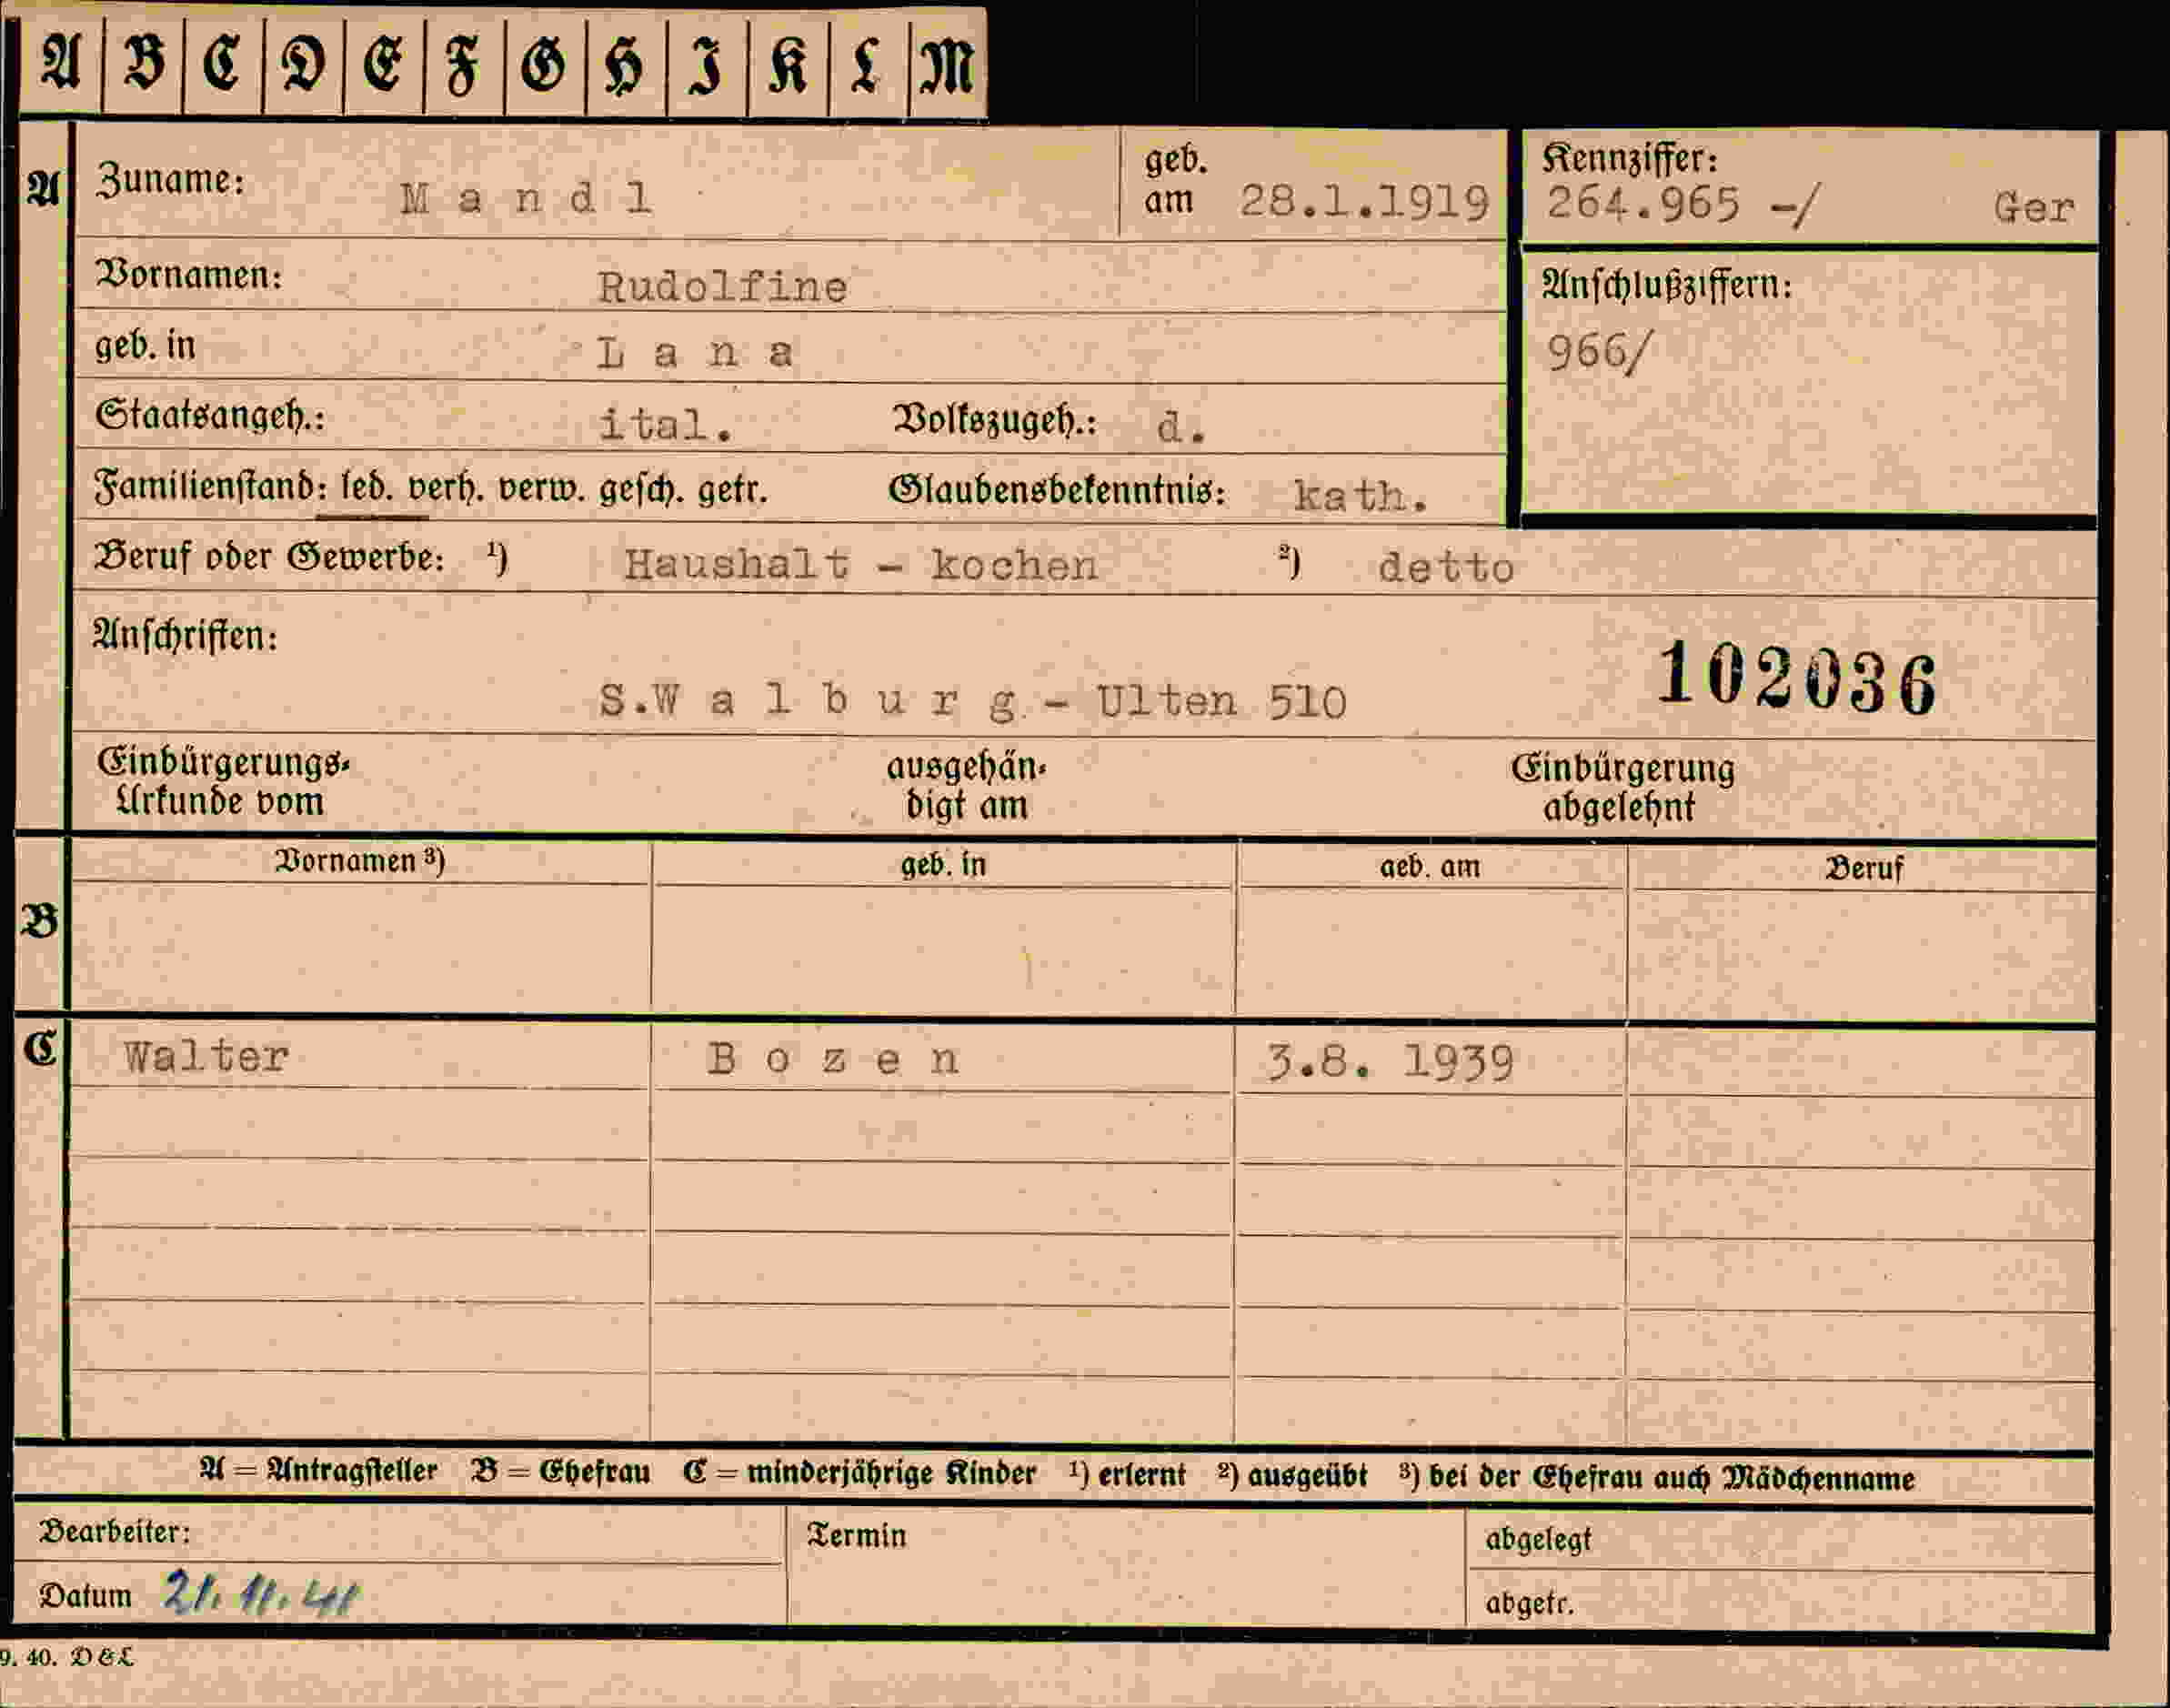 A B C D E F G H I K L M
A Zuname: Mandl geb. am 28.1.1919 Kennziffer: 264.965 -/ Ger
Vornamen: Rudolfine Anschlußziffern:
geb. in Lana 966/
Staatsangeh.: ital. Volkszugeh.: d.
Familienstand: led. verh. verw. gesch. getr. Glaubensbekenntnis: kath.
Beruf oder Gewerbe: 1) Haushalt - kochen 2) detto
Anschriften: 102036
S.Walburg - Ulten 510
Einbürgerungs- ausgehän- Einbürgerung
Urkunde vom digt am abgelehnt
Vornamen 3) geb. in geb. am Beruf
B
C Walter Bozen 3.8. 1939
A = Antragsteller B = Ehefrau C = minderjährige Kinder 1) erlernt 2) ausgeübt 3) bei der Ehefrau auch Mädchenname
Bearbeiter: Termin abgelegt
Datum 21. 11. 41 abgetr.
9. 40. D & L